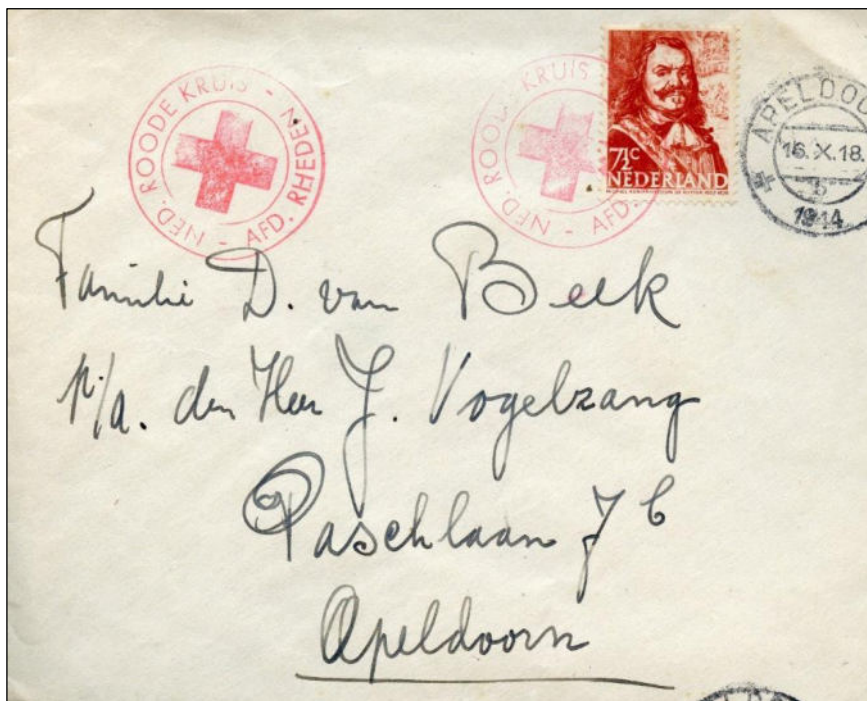 NED. ROODE KRUIS - AFD. RHEDEN -
NED. ROODE KRUIS - AFD.
7½c
NEDERLAND
APELDOO
16.X.18.
1944
Familie D. van Beek
p/a. den Heer J. Vogelzang
Paschlaan 7 b
Apeldoorn